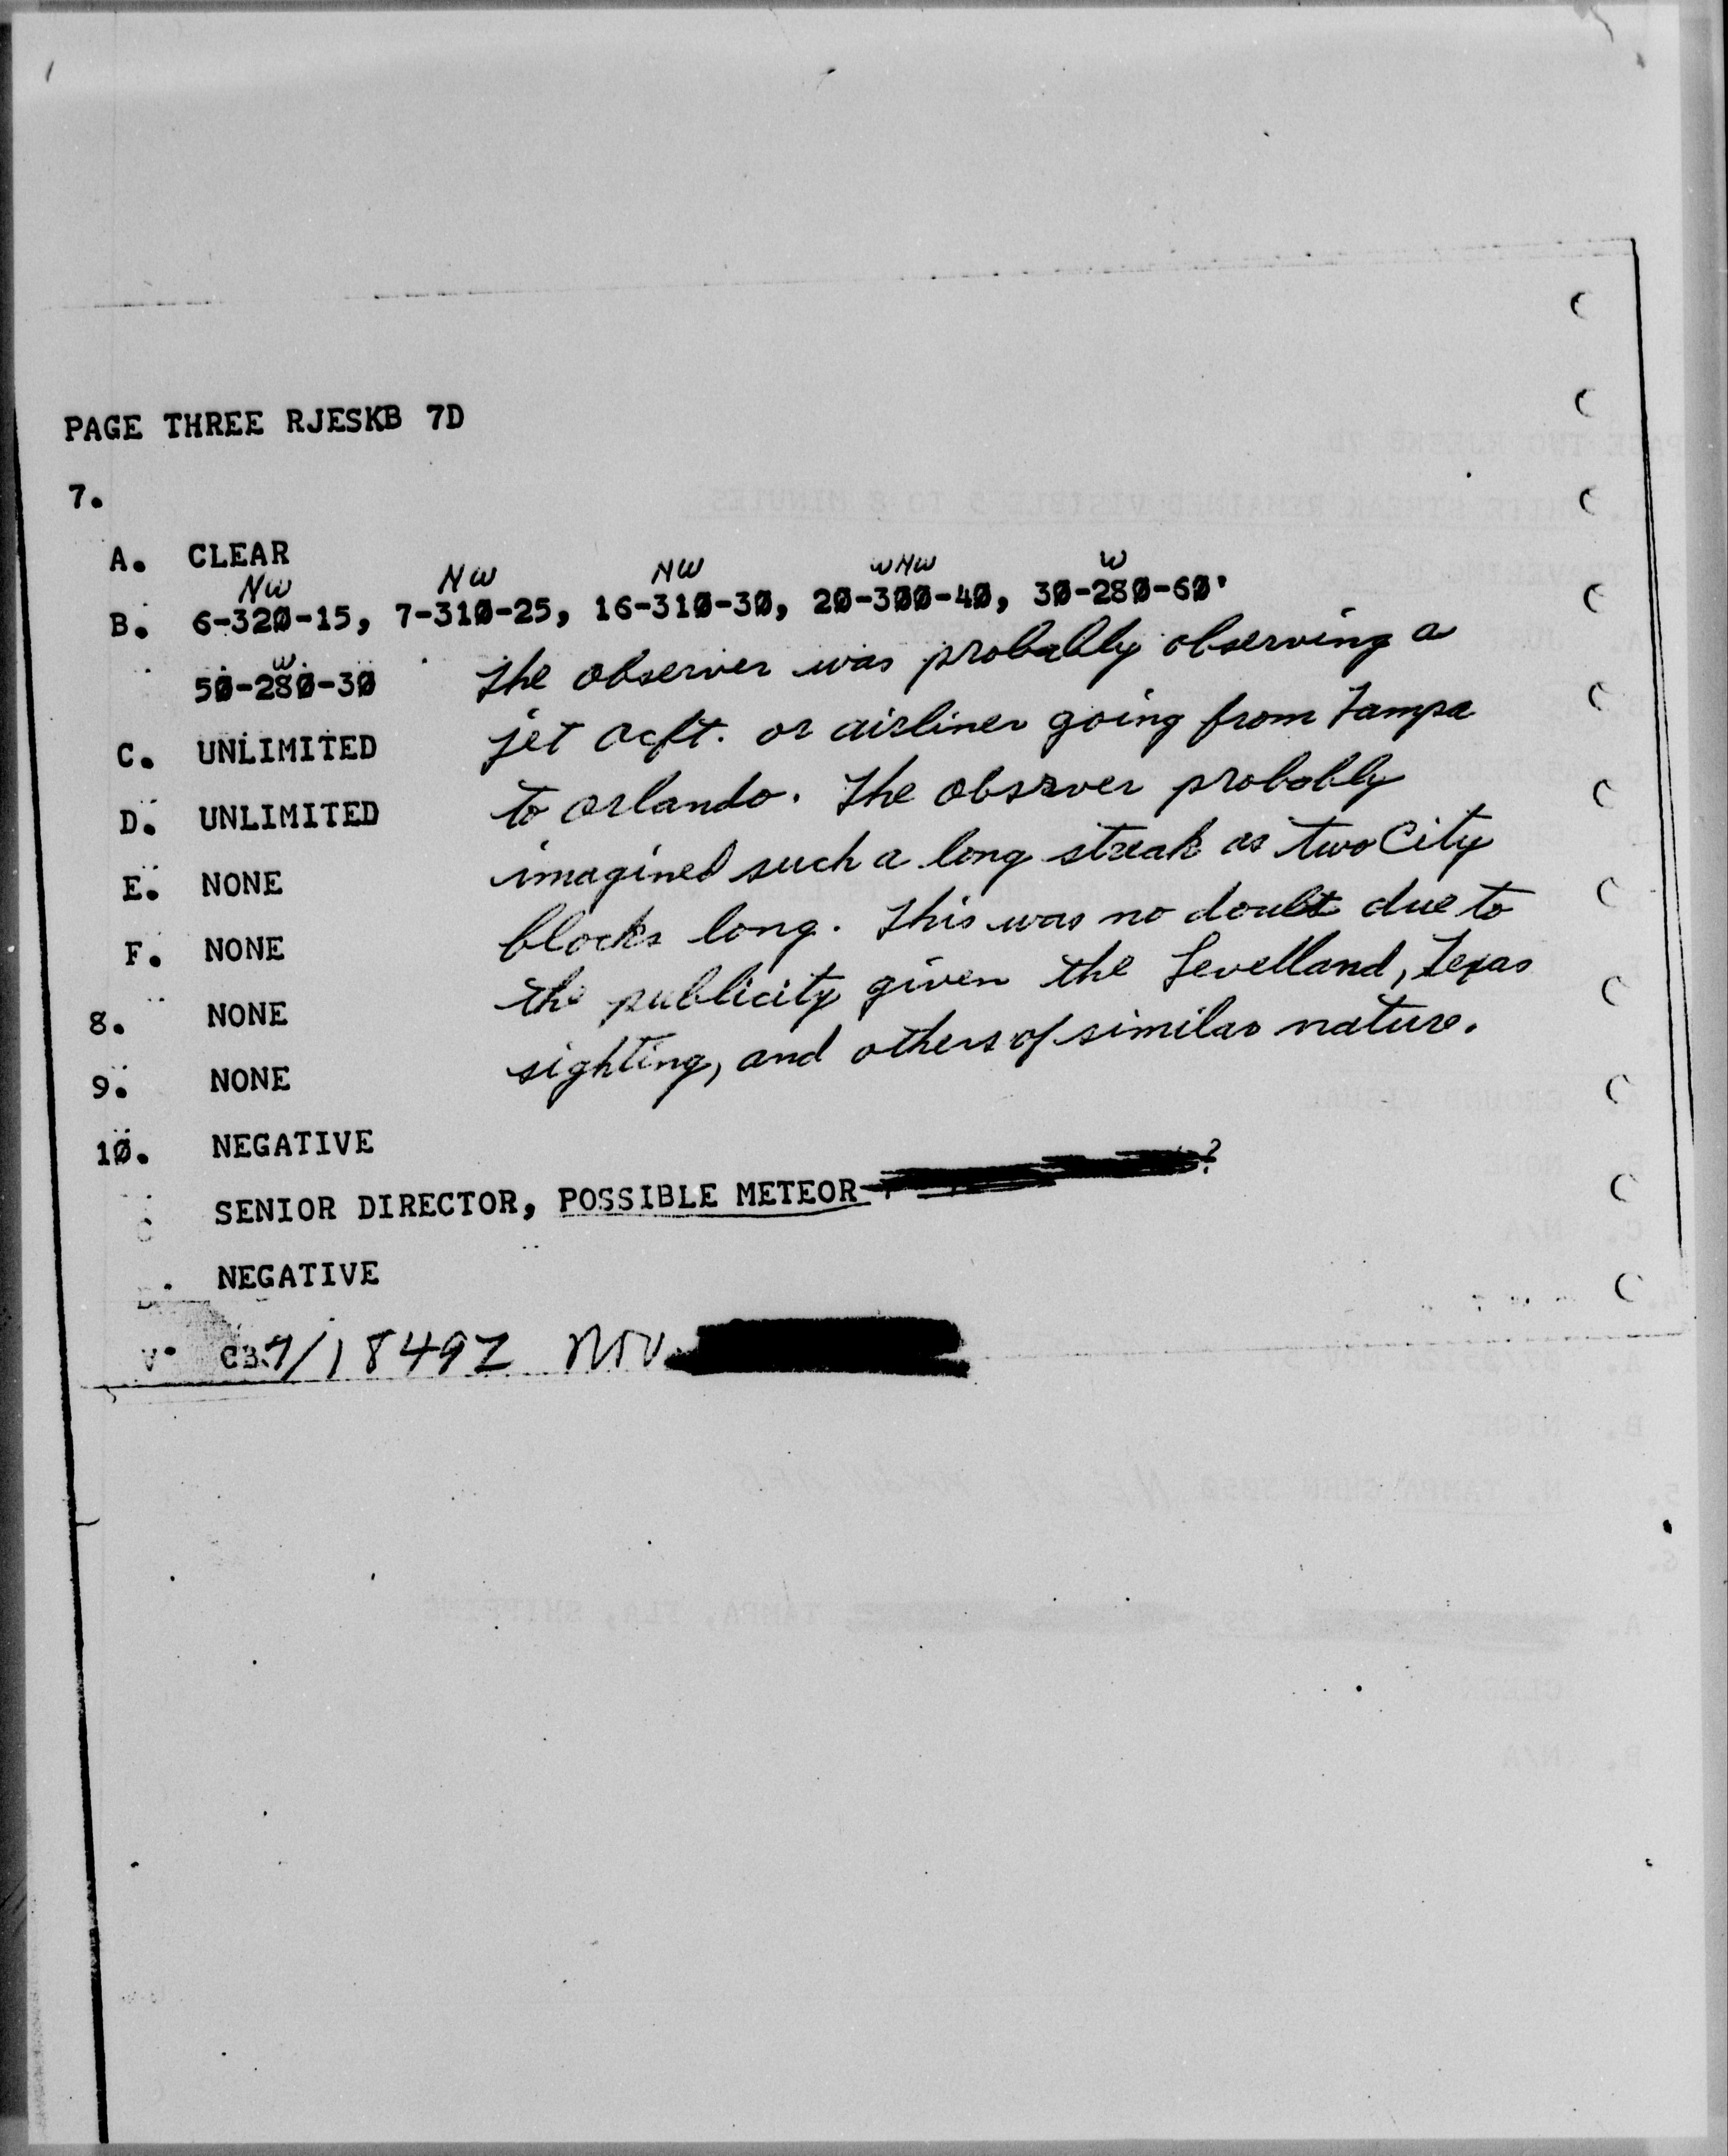 PAGE THREE RJESKB 7D
7.
A. CLEAR
NW NW NW WNW W
B. 6-320-15, 7-310-25, 16-310-30, 20-300-40, 30-280-60'
W
50-280-30
The observer was probably observing a
jet acft. or airliner going from Tampa
C. UNLIMITED
to Orlando. The observer probably
D. UNLIMITED
imagined such a long streak as two City
E. NONE
blocks long. This was no doubt due to
F. NONE
the publicity given the Levelland, Texas
8. NONE
sighting, and others of similar nature.
9. NONE
10. NEGATIVE
SENIOR DIRECTOR, POSSIBLE METEOR ?
NEGATIVE
7/1849Z NOV